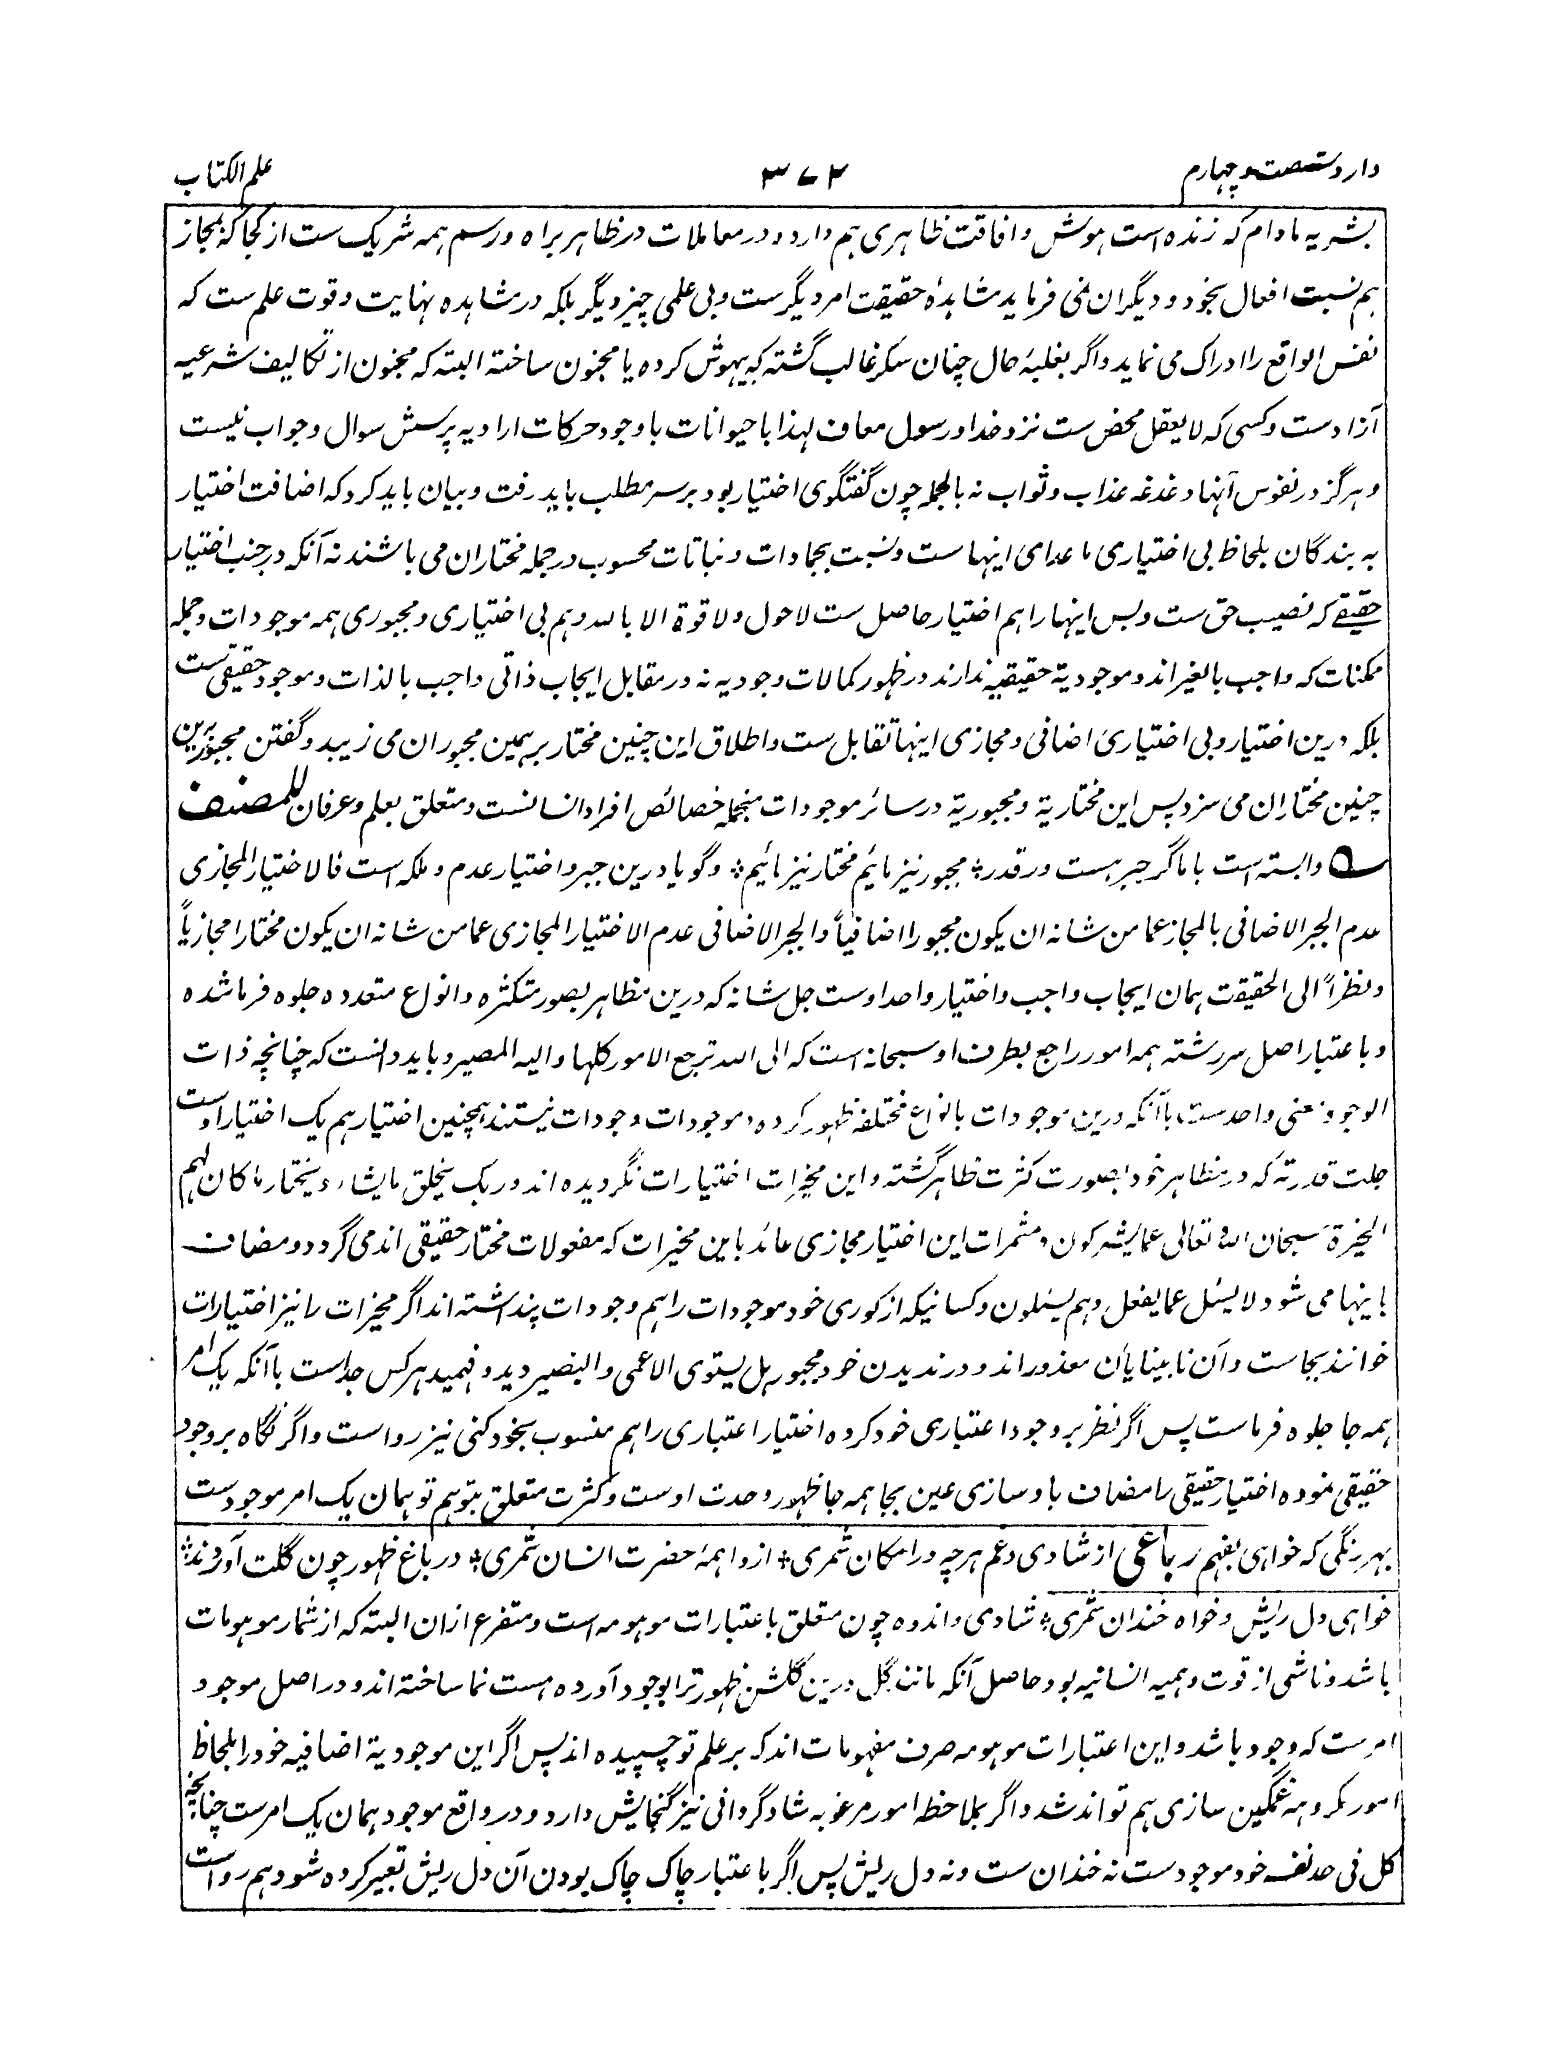 وارد شصت و چهارم
۳۷۲
علم الکتاب
بشریه مادام که زنده است هوش و افاقت ظاهری هم دارد و در معاملات در ظاهر براه و رسم همه شریک ست از کجا که بمجاز
هم نسبت افعال بخود و دیگران نمی فرماید مشاهدهٔ حقیقت امر دیگرست و بی علمی چیز دیگر بلکه در مشاهده نهایت وقوت علم ست که
نفس الواقع را ادراک می نماید و اگر بغلبهٔ حال چنان سکر غالب گشته که بیهوش کرده یا مجنون ساخته البته که مجنون از تکالیف شرعیه
آزادست و کسی که لایعقل محض ست نزد خدا و رسول معاف لهذا با حیوانات باوجود حرکات ارادیه پرسش سوال و جواب نیست
و هرگز در نفوس آنها دغدغه عذاب و ثواب نه بالجمله چون گفتگوی اختیار بود بر سر مطلب باید رفت و بیان باید کرد که اضافت اختیار
به بندگان بلحاظ بی اختیاری ماعدای اینهاست و نسبت بجمادات و نباتات محسوب در جمله مختاران می باشند نه آنکه در جنب اختیار
حقیقے که نصیب حق ست و بس اینها را هم اختیار حاصل ست لاحول ولا قوة الا بالله و هم بی اختیاری و مجبوری همه موجودات و جمله
ممکنات که واجب بالغیر اند و موجودیة حقیقیه ندارند در ظهور کمالات وجودیه نه در مقابل ایجاب ذاتی واجب بالذات و موجود حقیقی ست
بلکه درین اختیار و بی اختیاری اضافی و مجازی اینها تقابل ست و اطلاق این چنین مختار بر همین مجبوران می زیبد و گفتن مجبور برین
چنین مختاران می سزد پس این مختاریة و مجبوریة در سائر موجودات منجمله خصائص افراد انسانست و متعلق بعلم و عرفان للمصنف
وابسته است با ما گر جبر هست ور قدر ٭ مجبور نیز مائیم مختار نیز مائیم ٭ و گویا درین جبر و اختیار عدم و ملکه است فالاختیار المجازی
عدم الجبر الاضافی بالمجاز عما من شانه ان یکون مجبورا اضافیاً والجبر الاضافی عدم الاختیار المجازی عما من شانه ان یکون مختارا مجازیاً
و نظراً الی الحقیقت همان ایجاب واجب و اختیار واحد اوست جل شانه که درین مظاهر بصور متکثره و انواع متعدده جلوه فرما شده
و باعتبار اصل سررشته همه امور راجع بطرف او سبحانه است که الی الله ترجع الامور کلها و الیه المصیر و باید دانست که چنانچه ذات
الوجود یعنی واحدست باآنکه درین موجودات بانواع مختلفه ظهور کرده و موجودات وجودات نیستند همچنین اختیار هم یک اختیار اوست
جلت قدرته که در مظاهر خود بصورت کثرت ظاهر گشته و این مخیرات اختیارات نگردیده اند و ربک یخلق مایشاء و یختار ما کان لهم
الخیرة سبحان الله و تعالی عما یشرکون و مثمرات این اختیار مجازی عائد باین مخیرات که مفعولات مختار حقیقی اند می گردد و مضاف
باینها می شود لا یسئل عما یفعل و هم یسئلون و کسانیکه از کوری خود موجودات را هم وجودات پنداشته اند اگر مخیرات را نیز اختیارات
خوانند بجاست و آن نابینایان معذور اند و در ندیدن خود مجبور هل یستوی الاعمی والبصیر دید و فهمید هر کس جداست باآنکه یک امر
همه جا جلوه فرماست پس اگر نظر بر وجود اعتباری خود کرده اختیار اعتباری را هم منسوب بخود کنی نیز رواست و اگر نگاه بر وجود
حقیقی نموده اختیار حقیقی را مضاف باو سازی عین بجا همه جا ظهور وحدت اوست و کثرت متعلق بتوهم تو همان یک امر موجودست
بهر رنگی که خواهی بفهم رباعی از شادی و غم هر چه در امکان شمری ٭ از واهمهٔ حضرت انسان شمری ٭ در باغ ظهور چون گلت آوردند ٭
خواهی دل ریش و خواه خندان شمری ٭ شادی و اندوه چون متعلق باعتبارات موهومه است و متفرع ازان البته که از شمار موهومات
باشد و ناشی از قوت وهمیه انسانیه بود حاصل آنکه مانند گل درین گلشن ظهور ترا بوجود آورده هست نما ساخته اند و در اصل موجود
امرست که وجود باشد و این اعتبارات موهومه صرف مفهومات اند که بر علم تو چسپیده اند پس اگر این موجودیة اضافیه خود را بلحاظ
امور مکروهه غمگین سازی هم تواند شد و اگر بملاحظه امور مرغوبه شاد گردانی نیز گنجایش دارد و در واقع موجود همان یک امرست چنانچه
گل فی حد نفسه خود موجودست نه خندان ست و نه دل ریش پس اگر باعتبار چاک چاک بودن آن دل ریش تعبیر کرده شود هم رواست